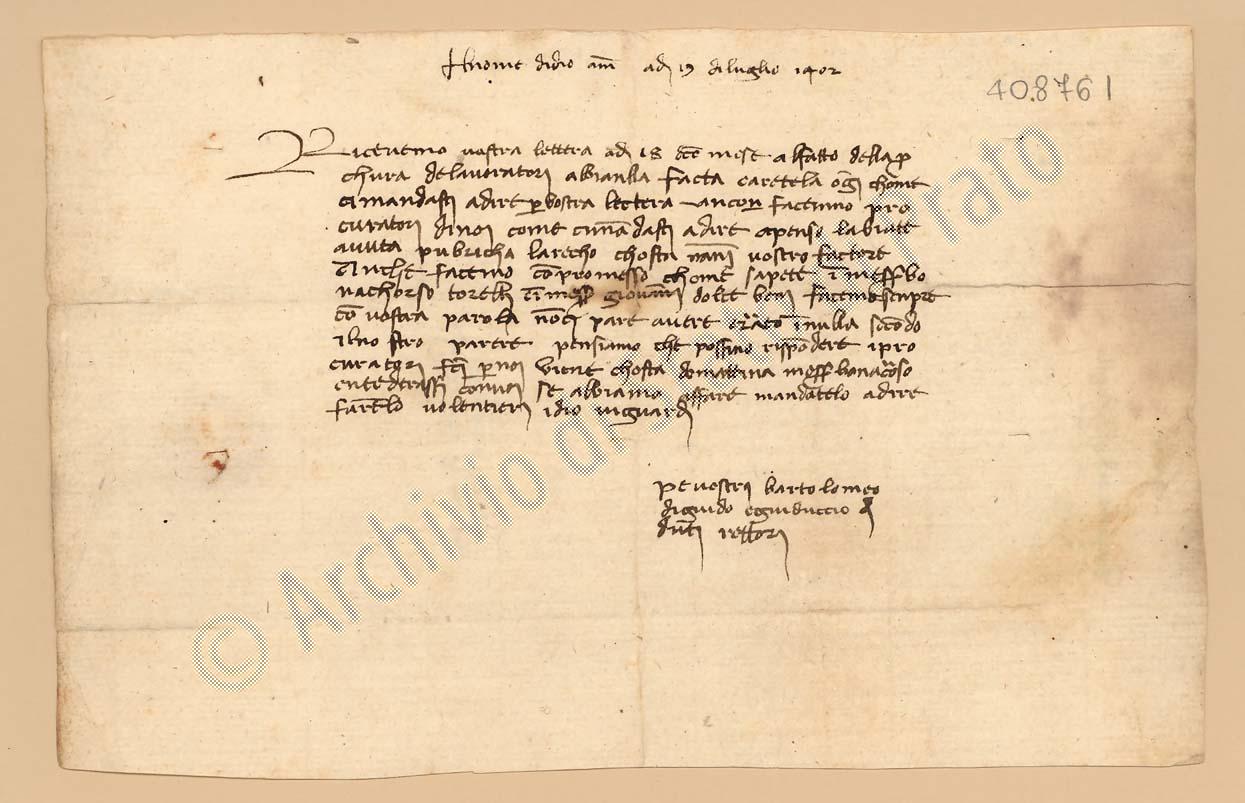 Al nome di dio am̄ adj 19 di luglio 1402
408761
Ricevemo vostra lettera adj 18 dēe mese al fatto della p
chura de lavoratori abbianlla facta caretela ogi chome
ci mandasti a dire p vostra lettera ancora facemmo pro
curatori di noi come ci mādasti a dire apenso labiate
avuta pubricha larecho chosta nānj vostro factore
facemo cōpromesso chome sapete ī messer bo
nachorso torelli ī messer giovannj dolcebenj facemo senpre
cō vostra parola nōcj pare avere erāto īnulla secōdo
il nostro parere pensiamo che possino rispōdere i pro
curatorj p noj viene chosta domatina messer bonacōso
con voj se abbiamo affare mandatelo a dire
farēlo volentierj idio vi guardj
pe vostrj bartolomeo
di guido e guiduccio dj
rettorj
© Archivio di Stato di Prato